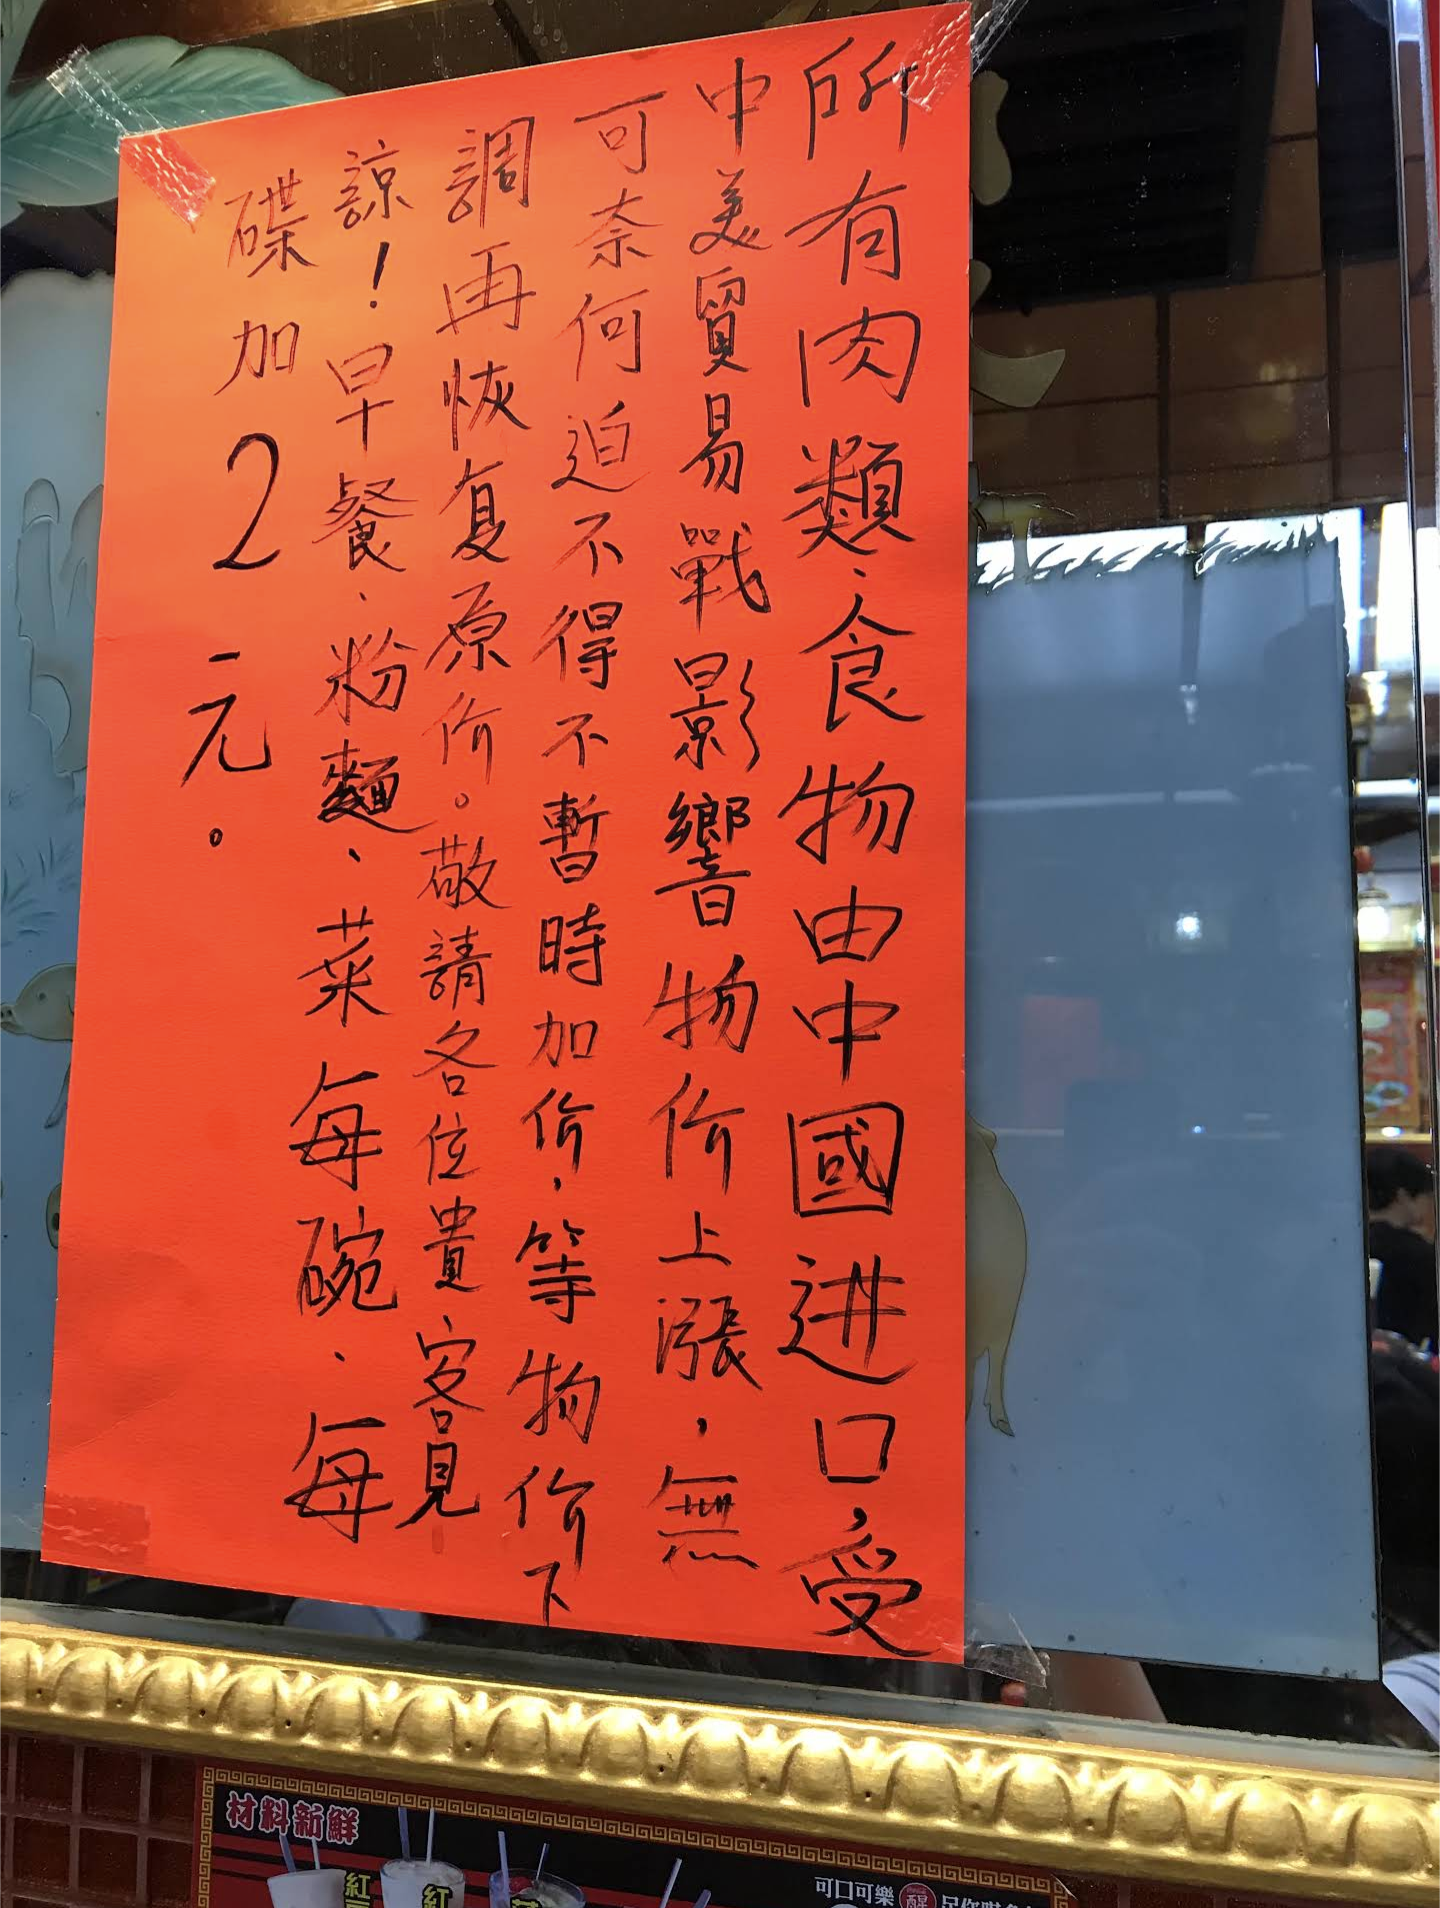 所有肉類、食物由中國进口，受
中美貿易戰影響物价上漲，無
可奈何迫不得不暫時加价，等物价下
調再恢复原价。敬請各位貴客見
諒！早餐、粉麵、菜每碗、每
碟加2元。
材料新鮮
紅
紅
可口可樂
醒